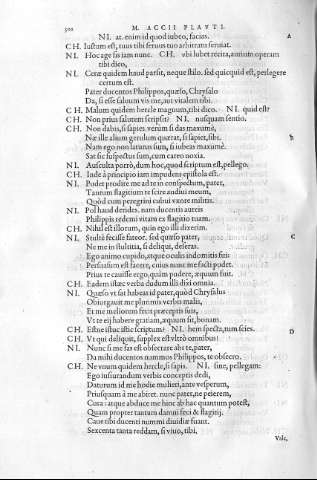 300 M. ACCII PLAVTI.
NI. at. enim id quod iubeo, facias. A
CH. Iustum est, tuus tibi seruus tuo arbitratu seruiat.
NI. Hoc age sis iam nunc. CH. vbi lubet recita, aurium operam
tibi dico,
NI. Ceræ quidem haud parsit, neque stilo. sed quicquid est, perlegere
certum est.
Pater ducentos Philippos, quæso, Chrysalo
Da, si esse saluum vis me, aut vitalem tibi.
CH. Malum quidem hercle magnum, tibi dico. NI. quid est?
CH. Non prius salutem scripsit? NI. nusquam sentio.
CH. Non dabis, si sapies. verum si das maxumè,
Næ ille alium gerulum quærat, si sapiet, sibi. b
Nam ego non laturus sum, si iubeas maxumè.
Sat sic suspectus sum, cum careo noxia.
NI. Ausculta porrò, dum hoc, quod scriptum est, pellego.
CH. Inde à principio iam impudens epistola est.
NI. Pudet prodire me ad te in conspectum, pater,
Tantum flagitium te scire audiui meum,
Quòd cum peregrini cubui vxore militis.
NI. Pol haud derides. nam ducentis aureis
Philippis redemi vitam ex flagitio tuam.
CH. Nihil est illorum, quin ego illi dixerim.
NI. Stultè fecisse fateor. sed quæso pater, C
Ne me in stultitia, si deliqui, deseras.
Ego animo cupido, atque oculis indomitis fui:
Persuasum est facere, cuius nunc me facti pudet.
Prius te cauisse ergo, quàm pudere, æquum fuit.
CH. Eadem istæc verba dudum illi dixi omnia.
NI. Quæso vt sat habeas id pater, quòd Chrysalus
Obiurgauit me plurimis verbis malis,
Et me meliorem fecit præceptis suis,
Vt te eij habere gratiam, æquum sit, bonam.
CH. Estne istuc istic scriptum? NI. hem specta, tum scies. D
CH. Vt qui deliquit, supplex est vltrò omnibus!
NI. Nunc si me fas est obsecrare abs te, pater,
Da mihi ducentos nummos Philippos, te obsecro.
CH. Ne vnum quidem hercle, si sapis. NI. sine, pellegam:
Ego iusiurandum verbis conceptis dedi,
Daturum id me hodie mulieri, ante vesperum,
Priusquam à me abiret. nunc pater, ne peierem,
Cura: atque abduce me hinc ab hac quantum potest,
Quam propter tantum damni feci & flagitij.
Caue tibi ducenti nummi diuidiæ fuant.
Sexcenta tanta reddam, si viuo, tibi.
Vale,